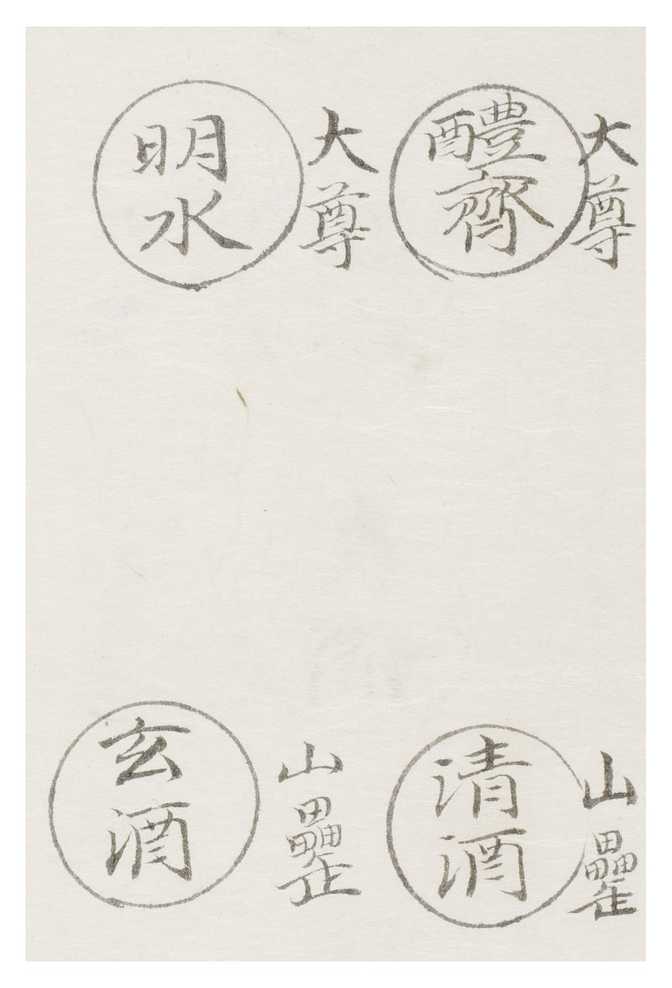 大尊
醴齊
大尊
明水
山罍
清酒
山罍
玄酒